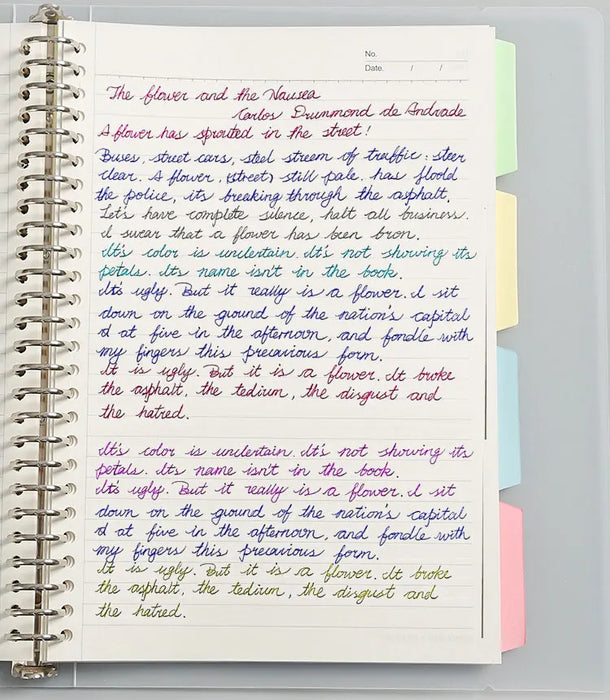 No.
Date. / /
The flower and the Nausea
Carlos Drummond de Andrade
A flower has sprouted in the street!
Buses, street cars, steel streem of traffic: steer
clear. A flower, (street) still pale, has floold
the police, its breaking through the asphalt.
Let's have complete silence, halt all business.
I swear that a flower has been bron.
It's color is undertain. It's not showing its
petals. Its name isn't in the book.
It's ugly. But it really is a flower. I sit
down on the gound of the nation's capital
d at five in the afternoon, and fondle with
my fingers this precavious form.
It is ugly. But it is a flower. It broke
the asphalt, the tedium, the disgust and
the hatred.
It's color is undertain. It's not showing its
petals. Its name isn't in the book.
It's ugly. But it really is a flower. I sit
down on the gound of the nation's capital
d at five in the afternoon, and fondle with
my fingers this precavious form.
It is ugly. But it is a flower. It broke
the asphalt, the tedium, the disgust and
the hatred.